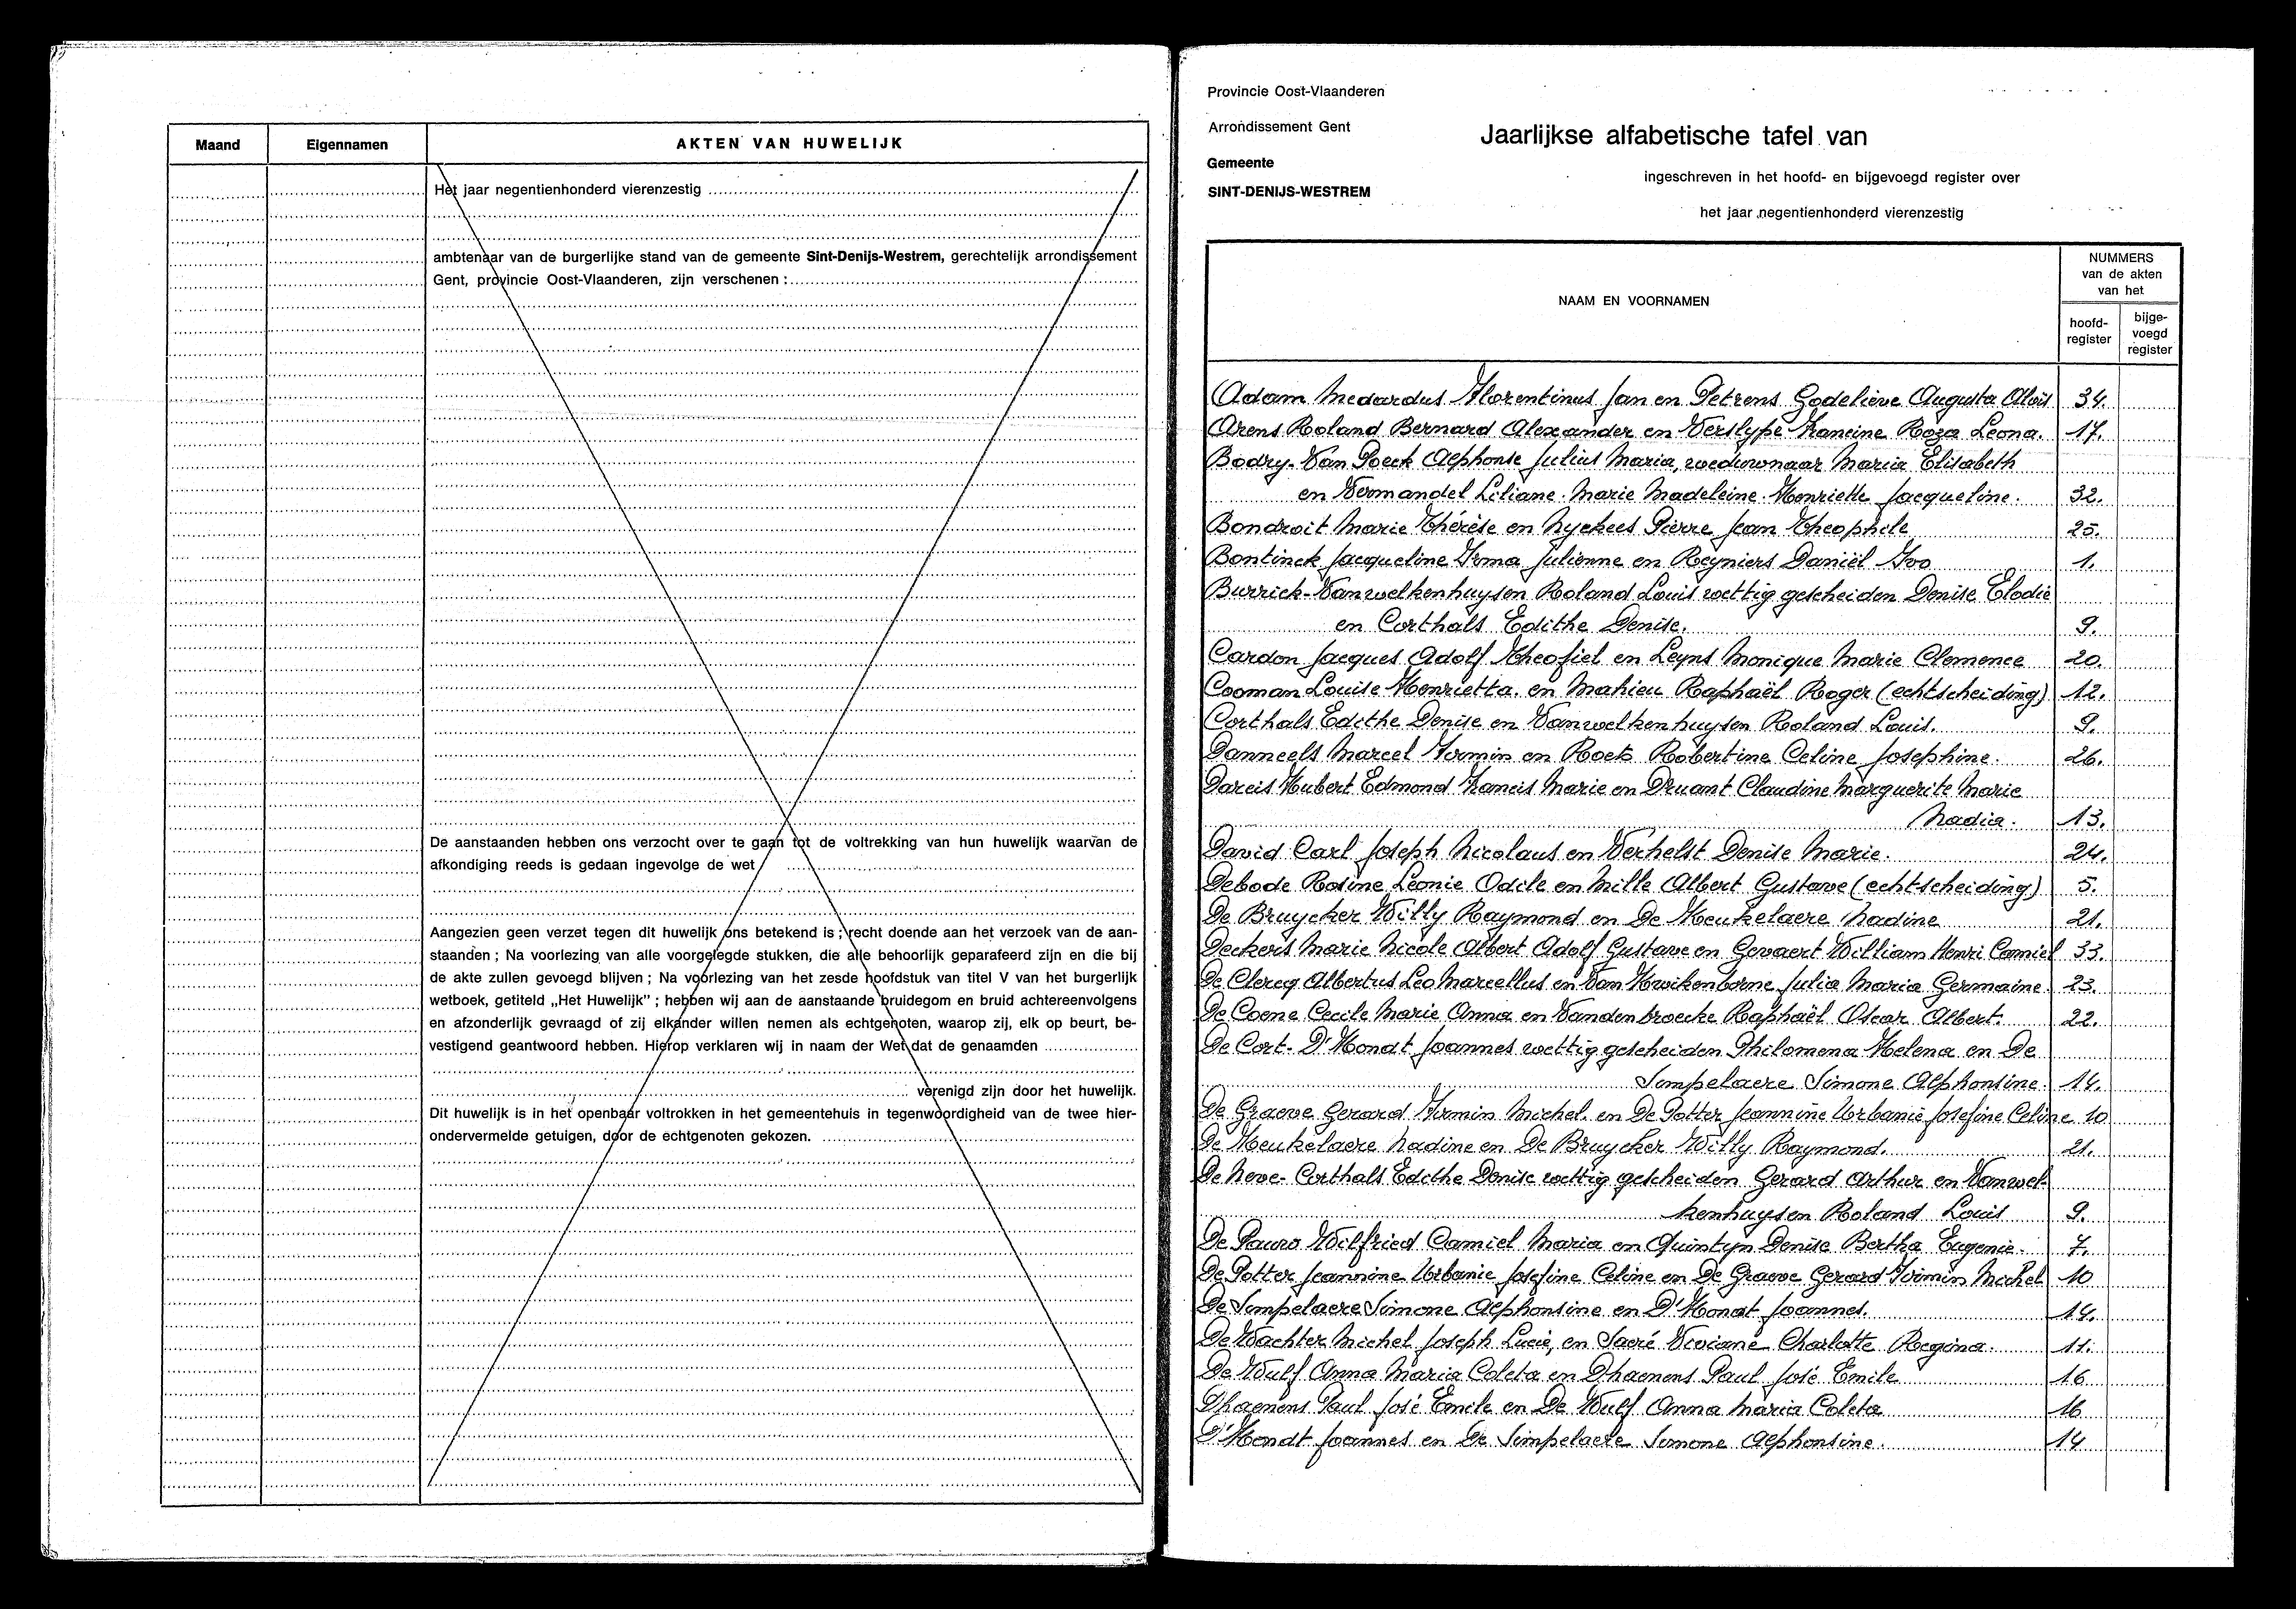 Maand Eigennamen AKTEN VAN HUWELIJK
Het jaar negentienhonderd vierenzestig
ambtenaar van de burgerlijke stand van de gemeente Sint-Denijs-Westrem, gerechtelijk arrondissement
Gent, provincie Oost-Vlaanderen, zijn verschenen :
De aanstaanden hebben ons verzocht over te gaan tot de voltrekking van hun huwelijk waarvan de
afkondiging reeds is gedaan ingevolge de wet
Aangezien geen verzet tegen dit huwelijk ons betekend is ; recht doende aan het verzoek van de aan-
staanden ; Na voorlezing van alle voorgelegde stukken, die alle behoorlijk geparafeerd zijn en die bij
de akte zullen gevoegd blijven ; Na voorlezing van het zesde hoofdstuk van titel V van het burgerlijk
wetboek, getiteld „Het Huwelijk" ; hebben wij aan de aanstaande bruidegom en bruid achtereenvolgens
en afzonderlijk gevraagd of zij elkander willen nemen als echtgenoten, waarop zij, elk op beurt, be-
vestigend geantwoord hebben. Hierop verklaren wij in naam der Wet dat de genaamden
verenigd zijn door het huwelijk.
Dit huwelijk is in het openbaar voltrokken in het gemeentehuis in tegenwoordigheid van de twee hier-
ondervermelde getuigen, door de echtgenoten gekozen.
Provincie Oost-Vlaanderen
Arrondissement Gent
Gemeente
SINT-DENIJS-WESTREM
Jaarlijkse alfabetische tafel van
ingeschreven in het hoofd- en bijgevoegd register over
het jaar negentienhonderd vierenzestig
NAAM EN VOORNAMEN
NUMMERS
van de akten
van het
hoofd-
register
bijge-
voegd
register
Adam Medardus Florentinus Jan en Petrens Godelieve Augusta Aloïs 34.
Arens Roland Bernard Alexander en Verslype Francine Roza Leona. 17.
Bodry-Van Poeck Alphonse Julius Maria, weduwnaar Maria Elisabeth
en Vermandel Liliane Marie Madeleine Henriette Jacqueline. 32.
Bondroit Marie Thérèse en Nyckees Pierre Jean Theophile 25.
Bontinck Jacqueline Irma Julienne en Reyniers Daniël Ivo 1.
Burrick-Vanwelkenhuysen Roland Louis wettig gescheiden Denise Elodie
en Corthals Edithe Denise. 9.
Cardon Jacques Adolf Theofiel en Leyns Monique Marie Clemence 20.
Cooman Louise Henrietta. en Mahieu Raphaël Roger (echtscheiding) 12.
Corthals Edithe Denise en Vanwelkenhuysen Roland Louis. 9.
Danneels Marcel Firmin en Roets Robertine Celine Josephine. 26.
Dareis Hubert Edmond Francis Marie en Druant Claudine Marguerite Marie
Nadia. 13.
David Carl Joseph Nicolaus en Verhelst Denise Marie. 24.
Debode Rosine Leonie Odile en Mille Albert Gustave (echtscheiding) 5.
De Bruycker Willy Raymond en De Keukelaere Nadine 21.
Deckers Marie Nicole Albert Adolf Gustave en Gevaert William Henri Camiel 33.
De Clercq Albertus Leo Marcellus en Van Kwikenborne Julia Maria Germaine. 23.
De Coene Cecile Marie Anna en Vandenbroecke Raphaël Oscar Albert. 22.
De Cort-D'Hondt Joannes wettig gescheiden Philomena Helena en De
Simpelaere Simone Alphonsine. 14.
De Graeve Gerard Firmin Michel. en De Potter Jeannine Urbanie Josefine Celine 10
De Keukelaere Nadine en De Bruycker Willy Raymond. 21.
De Neve-Corthals Edithe Denise wettig gescheiden Gerard Arthur en Vanwel-
kenhuysen Roland Louis 9.
De Pauw Wilfried Camiel Maria en Quintyn Denise Bertha Eugenie. 7.
De Potter Jeannine Urbanie Josefine Celine en De Graeve Gerard Firmin Michel 10
De Simpelaere Simone Alphonsine en D'Hondt Joannes. 14.
De Wachter Michel Joseph Lucie, en Sacré Viviane Charlotte Regina. 11.
De Wulf Anna Maria Coleta en Dhaenens Paul José Emile 16
Dhaenens Paul José Emile en De Wulf Anna Maria Coleta 16
D'Hondt Joannes en De Simpelaere Simone Alphonsine. 14